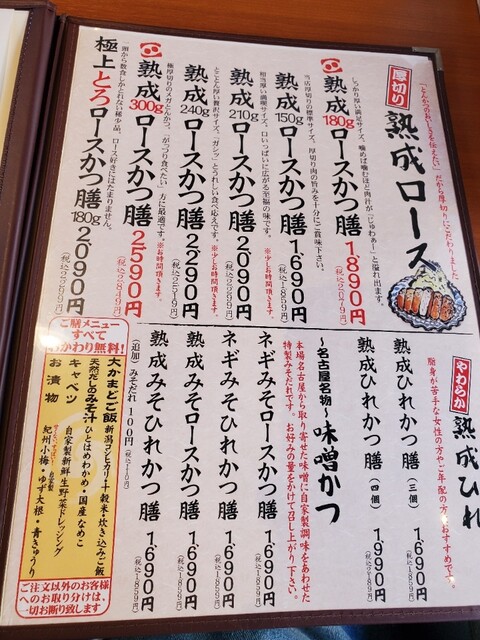 厚切り
熟成ロース
「とんかつのおいしさを伝えたい」だから厚切りにこだわりました
熟成180gロースかつ膳 1,890円
(税込2,079円)
しっかり厚い満足サイズ。噛めば噛むほど肉汁が「じゅわぁ〜」と溢れ出ます。
熟成150gロースかつ膳 1,690円
(税込1,859円)
当店厚切りの標準サイズ。厚切り肉の旨みを十分にご賞味下さい。
熟成210gロースかつ膳 2,090円
(税込2,299円)
相当厚い満喫サイズ。口いっぱいに広がる至福の味です。※少しお時間頂きます。
熟成240gロースかつ膳 2,290円
(税込2,519円)
とことん厚い贅沢サイズ。「ガシッ」とうれしい食べ応えです。※少しお時間頂きます。
熟成300gロースかつ膳 2,590円
(税込2,849円)
極厚切りのメガとんかつ。「がっつり食べたい」方に最適です。※お時間頂きます。
極上とろロースかつ膳180g 2,090円
(税込2,299円)
一頭から数食しかとれない稀少品。ロース好きにはたまりません。
やわらか
熟成ひれ
脂身が苦手な女性の方やご年配の方におすすめです。
熟成ひれかつ膳(三個) 1,690円
(税込1,859円)
熟成ひれかつ膳(四個) 1,990円
〜名古屋名物〜味噌かつ
本場名古屋から取り寄せた味噌に自家製調味をあわせた
特製みそだれです。お好みの量をかけて召し上がり下さい。
ネギみそロースかつ膳 1,690円
(税込1,859円)
ネギみそひれかつ膳 1,690円
(税込1,859円)
熟成みそロースかつ膳 1,690円
(税込1,859円)
熟成みそひれかつ膳 1,690円
(税込1,859円)
(追加)みそだれ 100円(税込110円)
ご膳メニュー
すべて
おかわり無料!
大かまどご飯 新潟コシヒカリ・十穀米・炊き込みご飯
天然だしのみそ汁 ひとはめわかめ・国産なめこ
キャベツ 自家製新鮮生野菜ドレッシング
お漬物 紀州小梅・ゆず大根・青きゅうり
ご注文以外のお客様
へのお取り分けは、
一切お断り致します